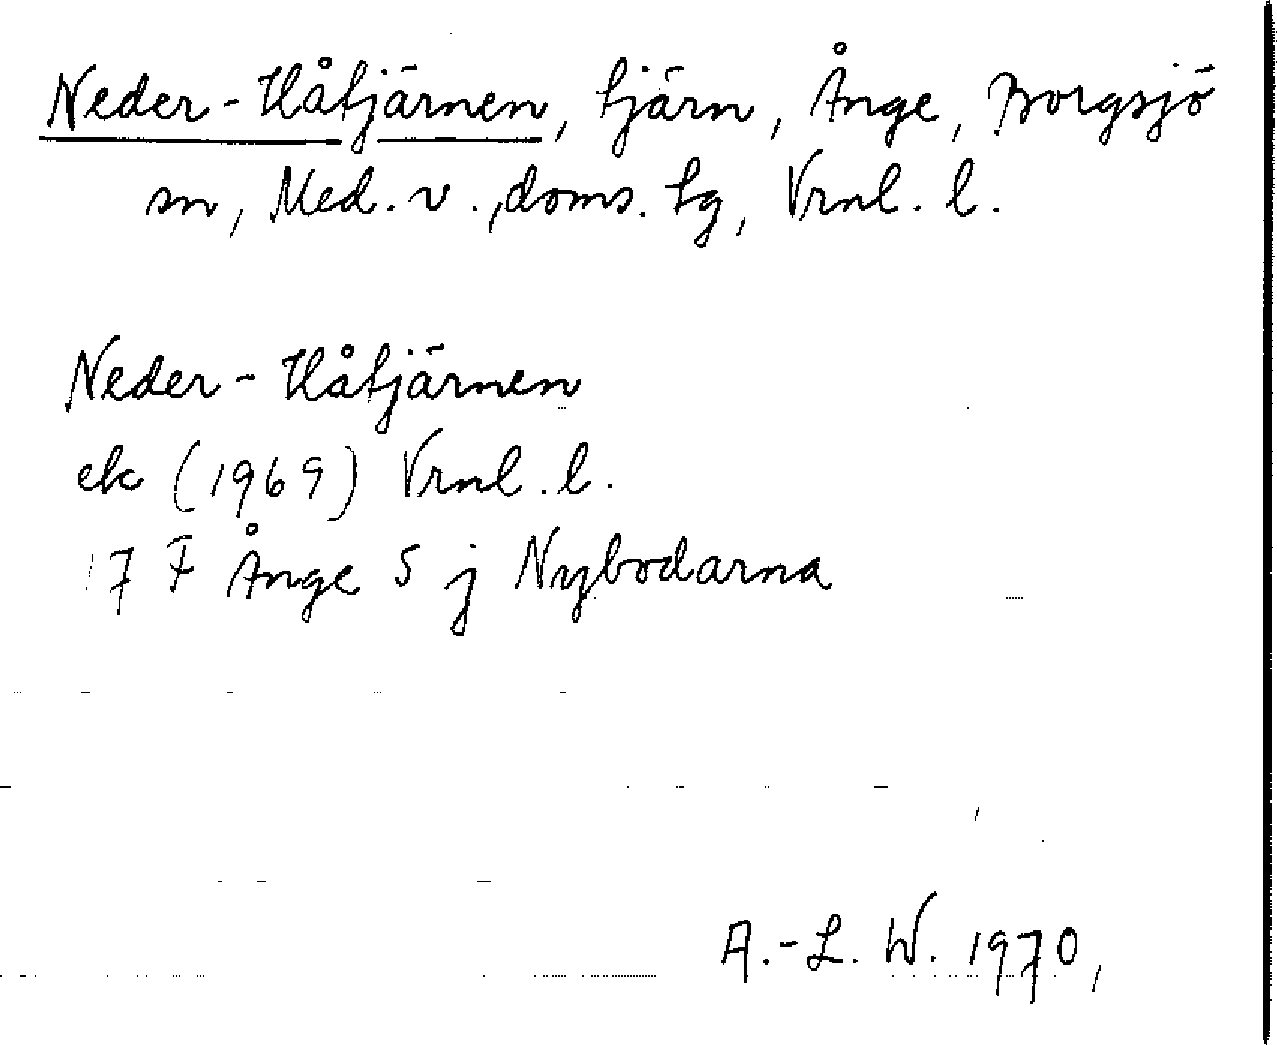 Neder-Håtjärnen, tjärn, Ånge, Borgsjö
sn, Med. v., doms. tg, Vrnl. l.
Neder-Håtjärnen
ek (1969) Vrnl. l.
17 F Ånge 5 j Nybodarna
A.-L. W. 1970,